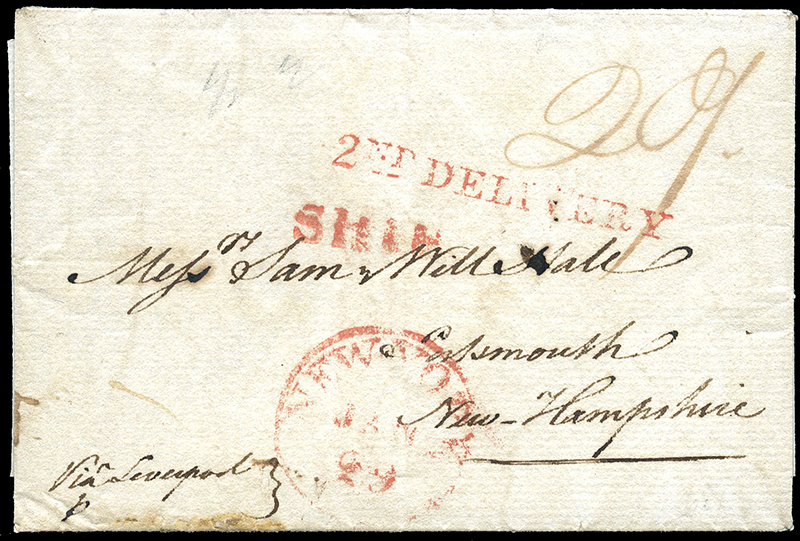 2ET DELIVERY
SHIP
Messrs Sam & Will Hale
Portsmouth
New-Hampshire
NEW YORK
JAN
29
Via Liverpool